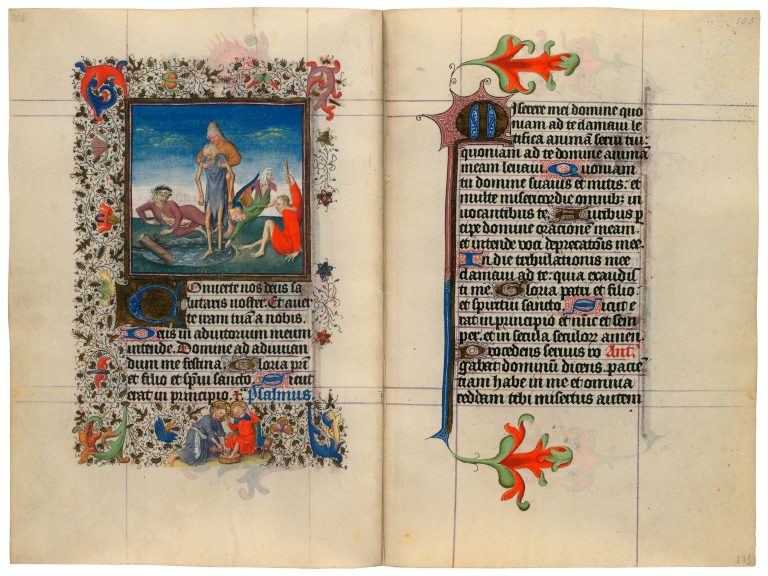 104
Onuerte nos deus sa
lutaris noster. Et auer
te iram tuā a nobis.
Deus in adiutorium meum
intende. Domine ad adiuuan
dum me festina. Gloria pr̄i
et filio et sp̄ui sancto. Sicut
erat in principio. Psalmus
Iserere mei domine quo
niam ad te clamaui le
tifica animā serui tui
quoniam ad te domine animā
meam leuaui. Quoniam
tu domine suauis et mitis: et
multe misericordie omnib: in
uocantibus te. Auribus p
cipe domine orationē meam
et intende uoci deprecatōis mee.
In die tribulationis mee
clamaui ad te: quia exaudis
ti me. Gloria patri et filio.
et spiritui sancto. Sicut e
rat in principio et nūc et sem
per. et in secula seculor amen.
Procedens seruus ro Ant.
gabat dominū dicens. pacie
tiam habe in me et omnia
reddam tibi misertus autem